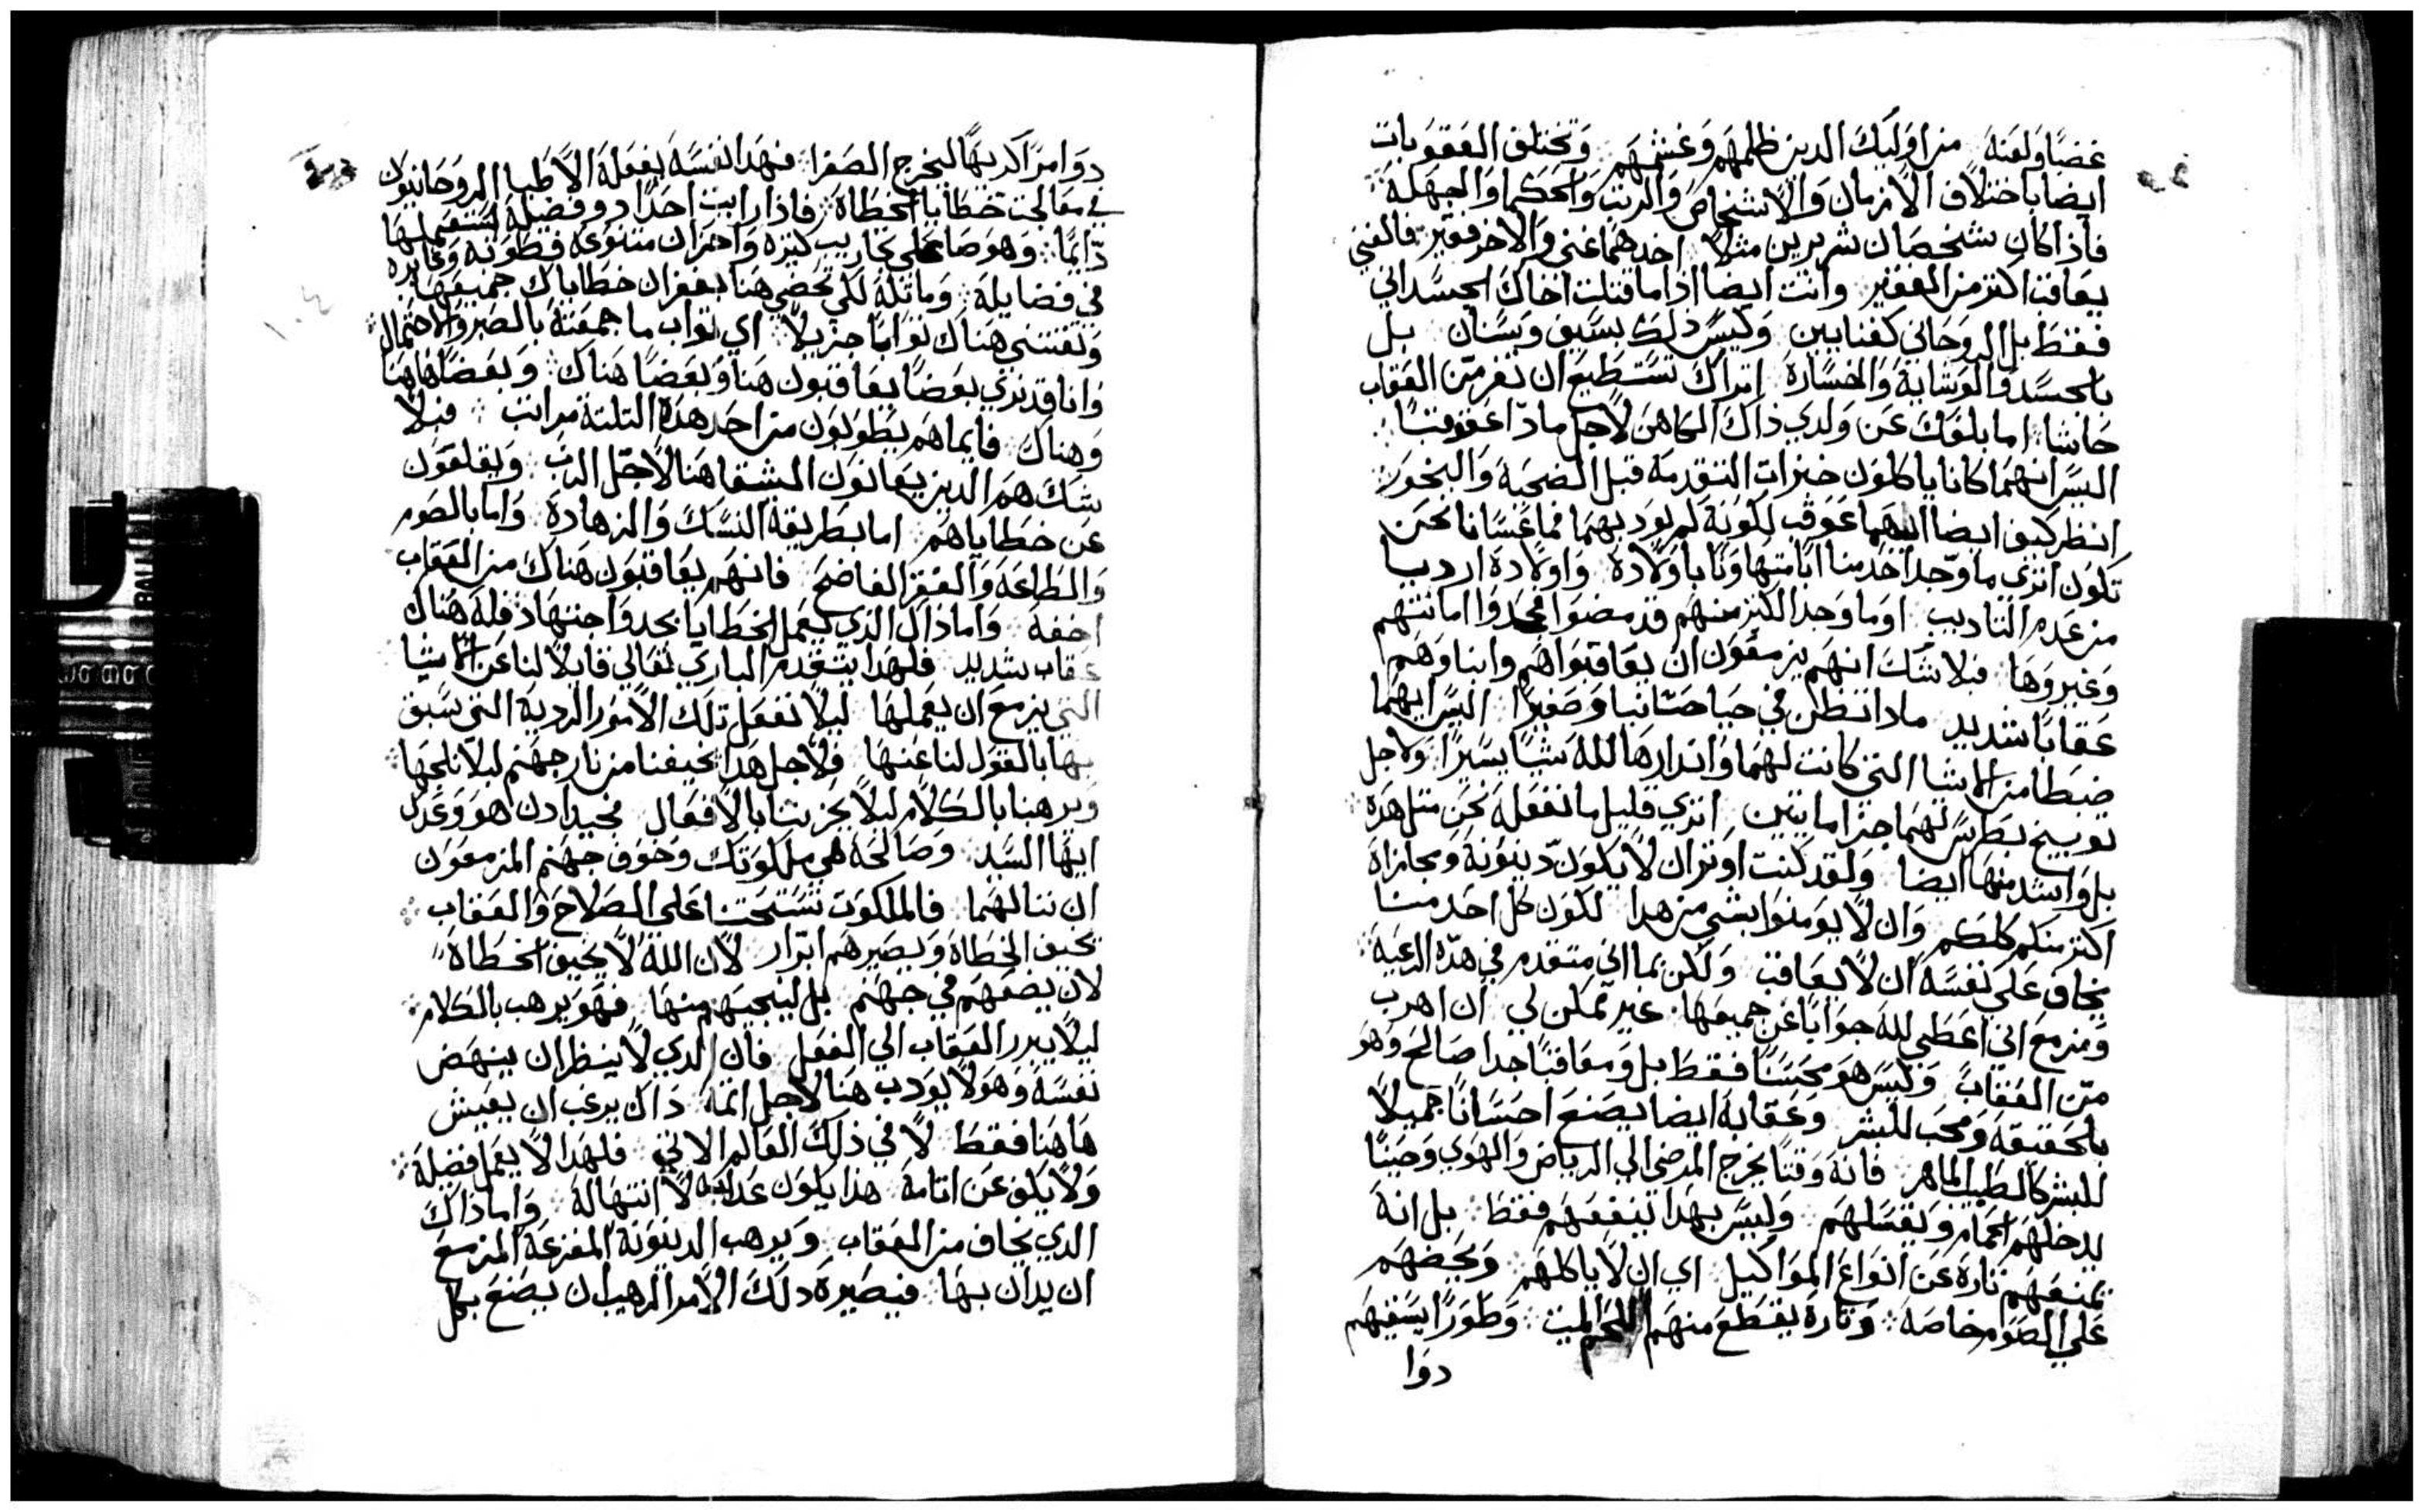 غضبًا ولعنة من اوليك الدين ظلمهم وغشمهم وتختلف العقوبات
ايضا باختلاف الازمان والاشخاص والرتب والحكما والجهلة
فاذا كان شخصان شريرين مثلاً احدهما غني والاخر فقير فالغني
يعاقب اكتر من الفقير وانت ايضا اذا ما قتلت اخاك الجسداني
فقط بل الروحاني كقنايين وليس ذلك بسيف وسنان بل
بالحسد والوشاية والخسارة اتراك تستطيع ان تفر من العقاب
حاشا اما بلغك عن ولدي ذاك الكاهن لاجل ماذا عوقبا
اليس انهما كانا ياكلون خبزات التقدمة قبل الضحية والبخور
انظر كيف ايضا ابيهما عوقب لكونه لم يودبهما فما عسانا نحن
نكون اتري ما وجد احد منا ابًا متهاونًا باولاده واولاده ارديا
من عدم التاديب اوما وجد الكتر منهم قد مضوا فجحدوا امانتهم
وغيروها فبلا شك انهم يزمعون ان يعاقبوا هم وابناوهم
عقابًا شديد مادا تنظن في حياحنانيا وصفيرا اليس ايهما
ضبطا من الاشيا التي كانت لهما وانذارها لله شيا يسيرا ولاجل
توبيخ بطرس لهما خرا مايتين اتري قليل ما نفعله نحن متل هده
بل واشد منها ايضا ولقد كنت اوتر ان لا يكون دينونة ومجازاة
اكتر منكم كلكم وان لا يومنوا بشي من هدا لكون كل احد منا
يخاف على نفسه ان لا يعاقب ولكن بما اني متقدم في هده الرعية
ومزمع اني اعطي لله جوابًا عن جميعها غير ممكن لي ان اهرب
من العقاب وليس هو محسنًا فقط بل ومعاقبًا جدا صالح وهو
بالحقيقة ومحب للبشر وعقابه ايضا يصنع احسانًا جميلاً
للبشر كالطبيب الماهر فانه وقتًا يخرج المرضى الي الرياض والهوي وحينًا
يدخلهم الحمام ويغسلهم وليس بهدا ينفعهم فقط بل انه
يمنعهم تارة عن انواع المواكيل اي ان لا ياكلهم ويحضهم
علي الصوم خاصة وتارة يقطع منهم اللحم الميت وطورًا يسقيهم
دوا
دوا مرًا كريهًا ليخرج الصفرا فهدا نفسه يفعله الاطبا الروحانيون
في معالجت خطايا الخطاة فاذا رايت احدًا دو فضيلة استعملها
دايمًا وهو صابر علي تجاريب كتيره واحزان متنوعه فطوبه وغايره
في فضايله وماتله لكي تحضي هنا بغفران خطاياك جميعها
وتقتني هناك توابًا جزيلاً اي تواب ما جمعته بالصبر والاحتمال
وانا قد نري بعضًا يعاقبون هنا وبعضًا هناك وبعضًا هاهنا
وهناك فايما هم يطوبون من احد هده التلتة مراتب فبلا
شك هم الدين يعانون المشقا هنا لاجل الرب ويقلعون
عن خطاياهم اما بطريقة النسك والزهادة واما بالصوم
والطاعه والفقر الفاضح فانهم يعاقبون هناك من العقاب
اخفه واما ذاك الدي يعمل الخطايا بجد واجتهاد فله هناك
عقاب شديد فلهدا يتقدم الباري تعالي قايلاً لنا عن الاشيا
التي يزمع ان يعملها ليلا نفعل تلك الامور الردية التي سبق
بها بالقول لنا عنها فلاجل هدا يخيفنا من نار جهنم ليلا نلجها
ويرهبنا بالكلام ليلا يجربنا بالافعال فجيد ادن هو وعدك
ايها السيد وصالحه هي ملكوتك وخوف جهنم المزمعون
ان ننالهما فالملكوت تستحتنا على الصلاح والعقاب
يخيف الخطاة ويصيرهم ابرار لان الله لا يخيف الخطاة
لان يضعهم في جهنم بل لينجيهم منها فهو يرهب بالكلام
ليلا يبرر العقاب الي الفعل فان الدي لا ينظر ان ينهض
نفسه وهو لا يودب هنا لاجل اتمه ذاك يرغب ان يعيش
هاهنا فقط لا في ذلك العالم الاتي فلهدا لا يعمل فضيلة
ولا يكف عن اتامه هذا يكون عدابه لا انتها له واما ذاك
الدي يخاف من العقاب ويرهب الدينونة المفزعة المزمع
ان يدان بها فيصيره دلك الامر الرهيب ان يصنع بكل